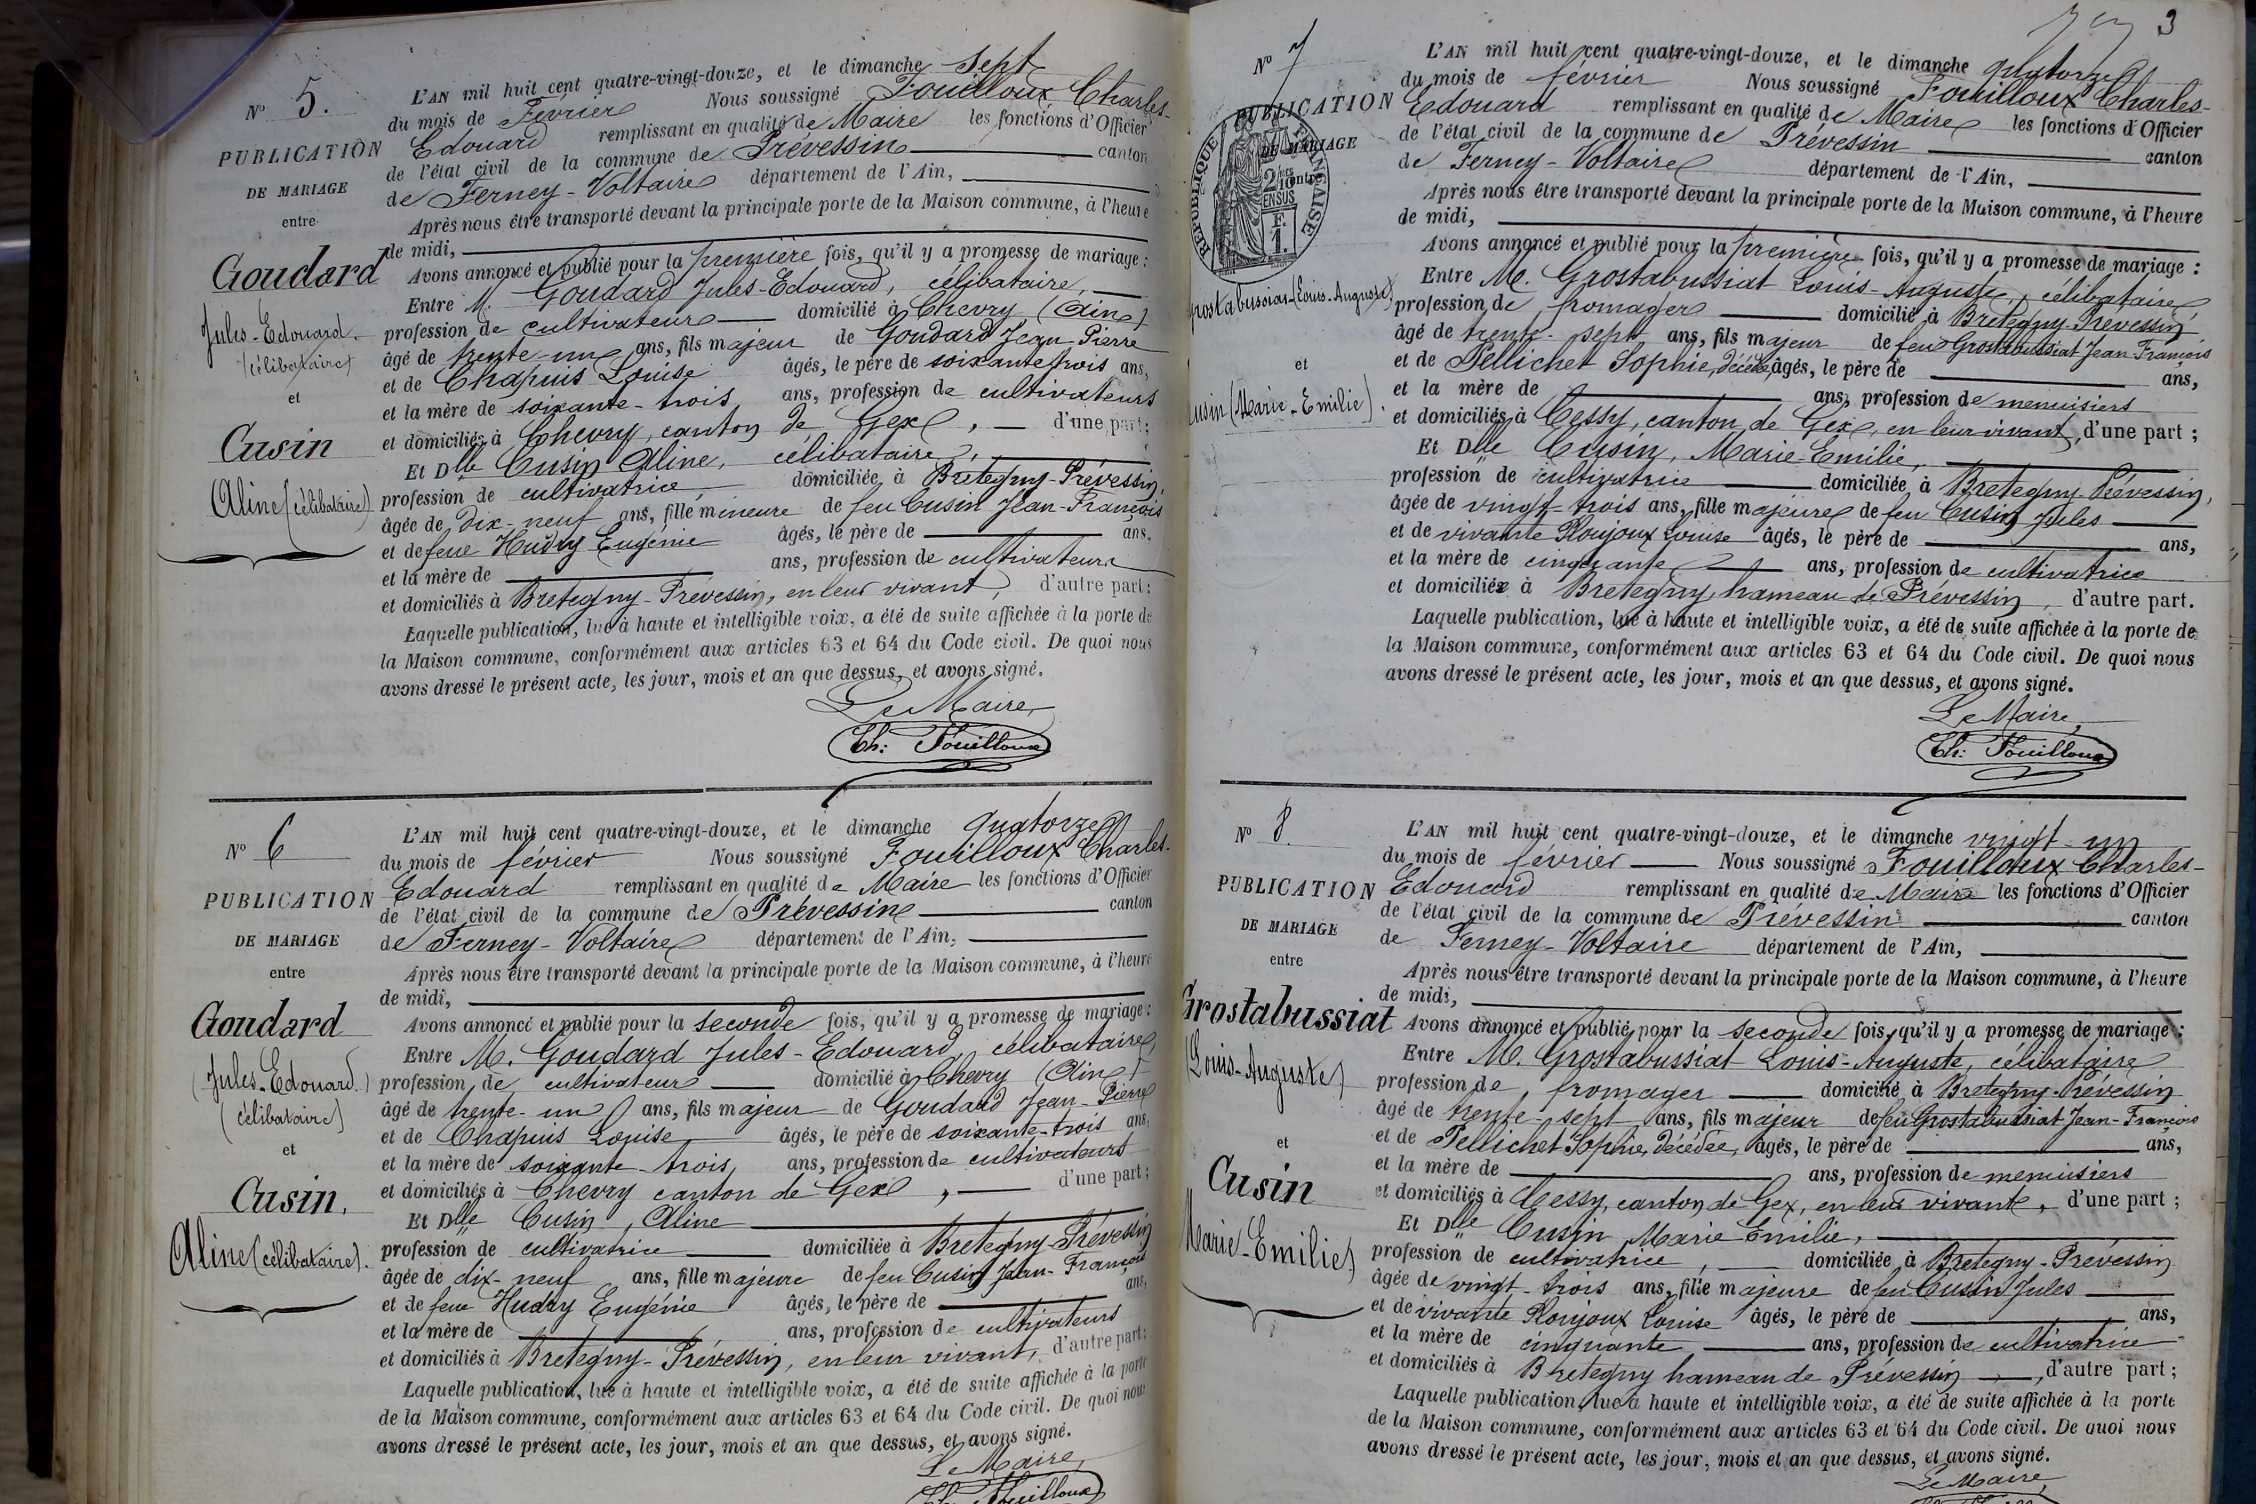 N° 5.
PUBLICATION
DE MARIAGE
entre
Goudard
Jules-Edouard.
(célibataire)
et
Cusin
Aline (célibataire)
L'AN mil huit cent quatre-vingt-douze, et le dimanche sept
du mois de Février Nous soussigné Fouilloux Charles-
Edouard remplissant en qualité de Maire les fonctions d'Officier
de l'état civil de la commune de Prévessin canton
de Ferney-Voltaire département de l'Ain,
Après nous être transporté devant la principale porte de la Maison commune, à l'heure
de midi,
Avons annoncé et publié pour la première fois, qu'il y a promesse de mariage :
Entre M. Goudard Jules-Edouard, célibataire,
profession de cultivateur domicilié à Chevry (Ain)
âgé de trente-un ans, fils majeur de Goudard Jean-Pierre
et de Chapuis Louise âgés, le père de soixante-trois ans,
et la mère de soixante-trois ans, profession de cultivateurs
et domiciliés à Chevry, canton de Gex, d'une part ;
Et Dlle Cusin Aline, célibataire,
profession de cultivatrice, domiciliée à Bretegny-Prévessin,
âgée de dix-neuf ans, fille mineure de feu Cusin Jean-François
et de feue Hudry Eugénie âgés, le père de ans,
et la mère de ans, profession de cultivateurs
et domiciliés à Bretegny-Prévessin, en leur vivant, d'autre part :
Laquelle publication, lue à haute et intelligible voix, a été de suite affichée à la porte de
la Maison commune, conformément aux articles 63 et 64 du Code civil. De quoi nous
avons dressé le présent acte, les jour, mois et an que dessus, et avons signé.
Le Maire,
Ch: Fouilloux
N° 6
PUBLICATION
DE MARIAGE
entre
Goudard
(Jules-Edouard.)
(célibataire)
et
Cusin.
Aline (célibataire).
L'AN mil huit cent quatre-vingt-douze, et le dimanche quatorze
du mois de février Nous soussigné Fouilloux Charles-
Edouard remplissant en qualité de Maire les fonctions d'Officier
de l'état civil de la commune de Prévessin canton
de Ferney-Voltaire département de l'Ain,
Après nous être transporté devant la principale porte de la Maison commune, à l'heure
de midi,
Avons annoncé et publié pour la seconde fois, qu'il y a promesse de mariage :
Entre M. Goudard Jules-Edouard, célibataire,
profession de cultivateur domicilié à Chevry (Ain)
âgé de trente-un ans, fils majeur de Goudard Jean-Pierre
et de Chapuis Louise âgés, le père de soixante-trois ans,
et la mère de soixante-trois, ans, profession de cultivateurs
et domiciliés à Chevry canton de Gex, d'une part ;
Et Dlle Cusin, Aline
profession de cultivatrice domiciliée à Bretegny-Prévessin
âgée de dix-neuf ans, fille majeure de feu Cusin Jean-François
et de feue Hudry Eugénie âgés, le père de ans,
et la mère de ans, profession de cultivateurs
et domiciliés à Bretegny-Prévessin, en leur vivant, d'autre part :
Laquelle publication, lue à haute et intelligible voix, a été de suite affichée à la porte
de la Maison commune, conformément aux articles 63 et 64 du Code civil. De quoi nous
avons dressé le présent acte, les jour, mois et an que dessus, et avons signé.
Le Maire,
Ch: Fouilloux
3
N° 7
PUBLICATION
DE MARIAGE
entre
RÉPUBLIQUE FRANÇAISE
2/10 EN SUS
F.
1.
Grostabussiat (Louis-Auguste),
et
Cusin (Marie-Emilie).
L'AN mil huit cent quatre-vingt-douze, et le dimanche quatorze
du mois de février Nous soussigné Fouilloux Charles-
Edouard remplissant en qualité de Maire les fonctions d'Officier
de l'état civil de la commune de Prévessin canton
de Ferney-Voltaire département de l'Ain,
Après nous être transporté devant la principale porte de la Maison commune, à l'heure
de midi,
Avons annoncé et publié pour la première fois, qu'il y a promesse de mariage :
Entre M. Grostabussiat Louis-Auguste, célibataire
profession de fromager domicilié à Bretegny-Prévessin
âgé de trente-sept ans, fils majeur de feu Grostabussiat Jean François
et de Pellichet Sophie, décédée, âgés, le père de ans,
et la mère de ans, profession de menuisiers
et domiciliés à Cessy, canton de Gex, en leur vivant, d'une part ;
Et Dlle Cusin, Marie-Emilie,
profession de cultivatrice domiciliée à Bretegny-Prévessin,
âgée de vingt-trois ans, fille majeure de feu Cusin Jules
et de vivante Roujoux Louise âgés, le père de ans,
et la mère de cinquante ans, profession de cultivatrice
et domiciliés à Bretegny, hameau de Prévessin, d'autre part.
Laquelle publication, lue à haute et intelligible voix, a été de suite affichée à la porte de
la Maison commune, conformément aux articles 63 et 64 du Code civil. De quoi nous
avons dressé le présent acte, les jour, mois et an que dessus, et avons signé.
Le Maire,
Ch: Fouilloux
N° 8.
PUBLICATION
DE MARIAGE
entre
Grostabussiat
(Louis-Auguste)
et
Cusin
Marie-Emilie)
L'AN mil huit cent quatre-vingt-douze, et le dimanche vingt-un
du mois de février Nous soussigné Fouilloux Charles-
Edouard remplissant en qualité de Maire les fonctions d'Officier
de l'état civil de la commune de Prévessin canton
de Ferney-Voltaire département de l'Ain,
Après nous être transporté devant la principale porte de la Maison commune, à l'heure
de midi,
Avons annoncé et publié pour la seconde fois, qu'il y a promesse de mariage :
Entre M. Grostabussiat Louis-Auguste, célibataire
profession de fromager domicilié à Bretegny-Prévessin
âgé de trente-sept ans, fils majeur de feu Grostabussiat Jean-François
et de Pellichet Sophie, décédée, âgés, le père de ans,
et la mère de ans, profession de menuisiers
et domiciliés à Cessy, canton de Gex, en leur vivant, d'une part ;
Et Dlle Cusin Marie Emilie,
profession de cultivatrice, domiciliée à Bretegny-Prévessin
âgée de vingt-trois ans, fille majeure de feu Cusin Jules
et de vivante Roujoux Louise âgés, le père de ans,
et la mère de cinquante ans, profession de cultivatrice
et domiciliés à Bretegny hameau de Prévessin, d'autre part ;
Laquelle publication, lue à haute et intelligible voix, a été de suite affichée à la porte
de la Maison commune, conformément aux articles 63 et 64 du Code civil. De quoi nous
avons dressé le présent acte, les jour, mois et an que dessus, et avons signé.
Le Maire,